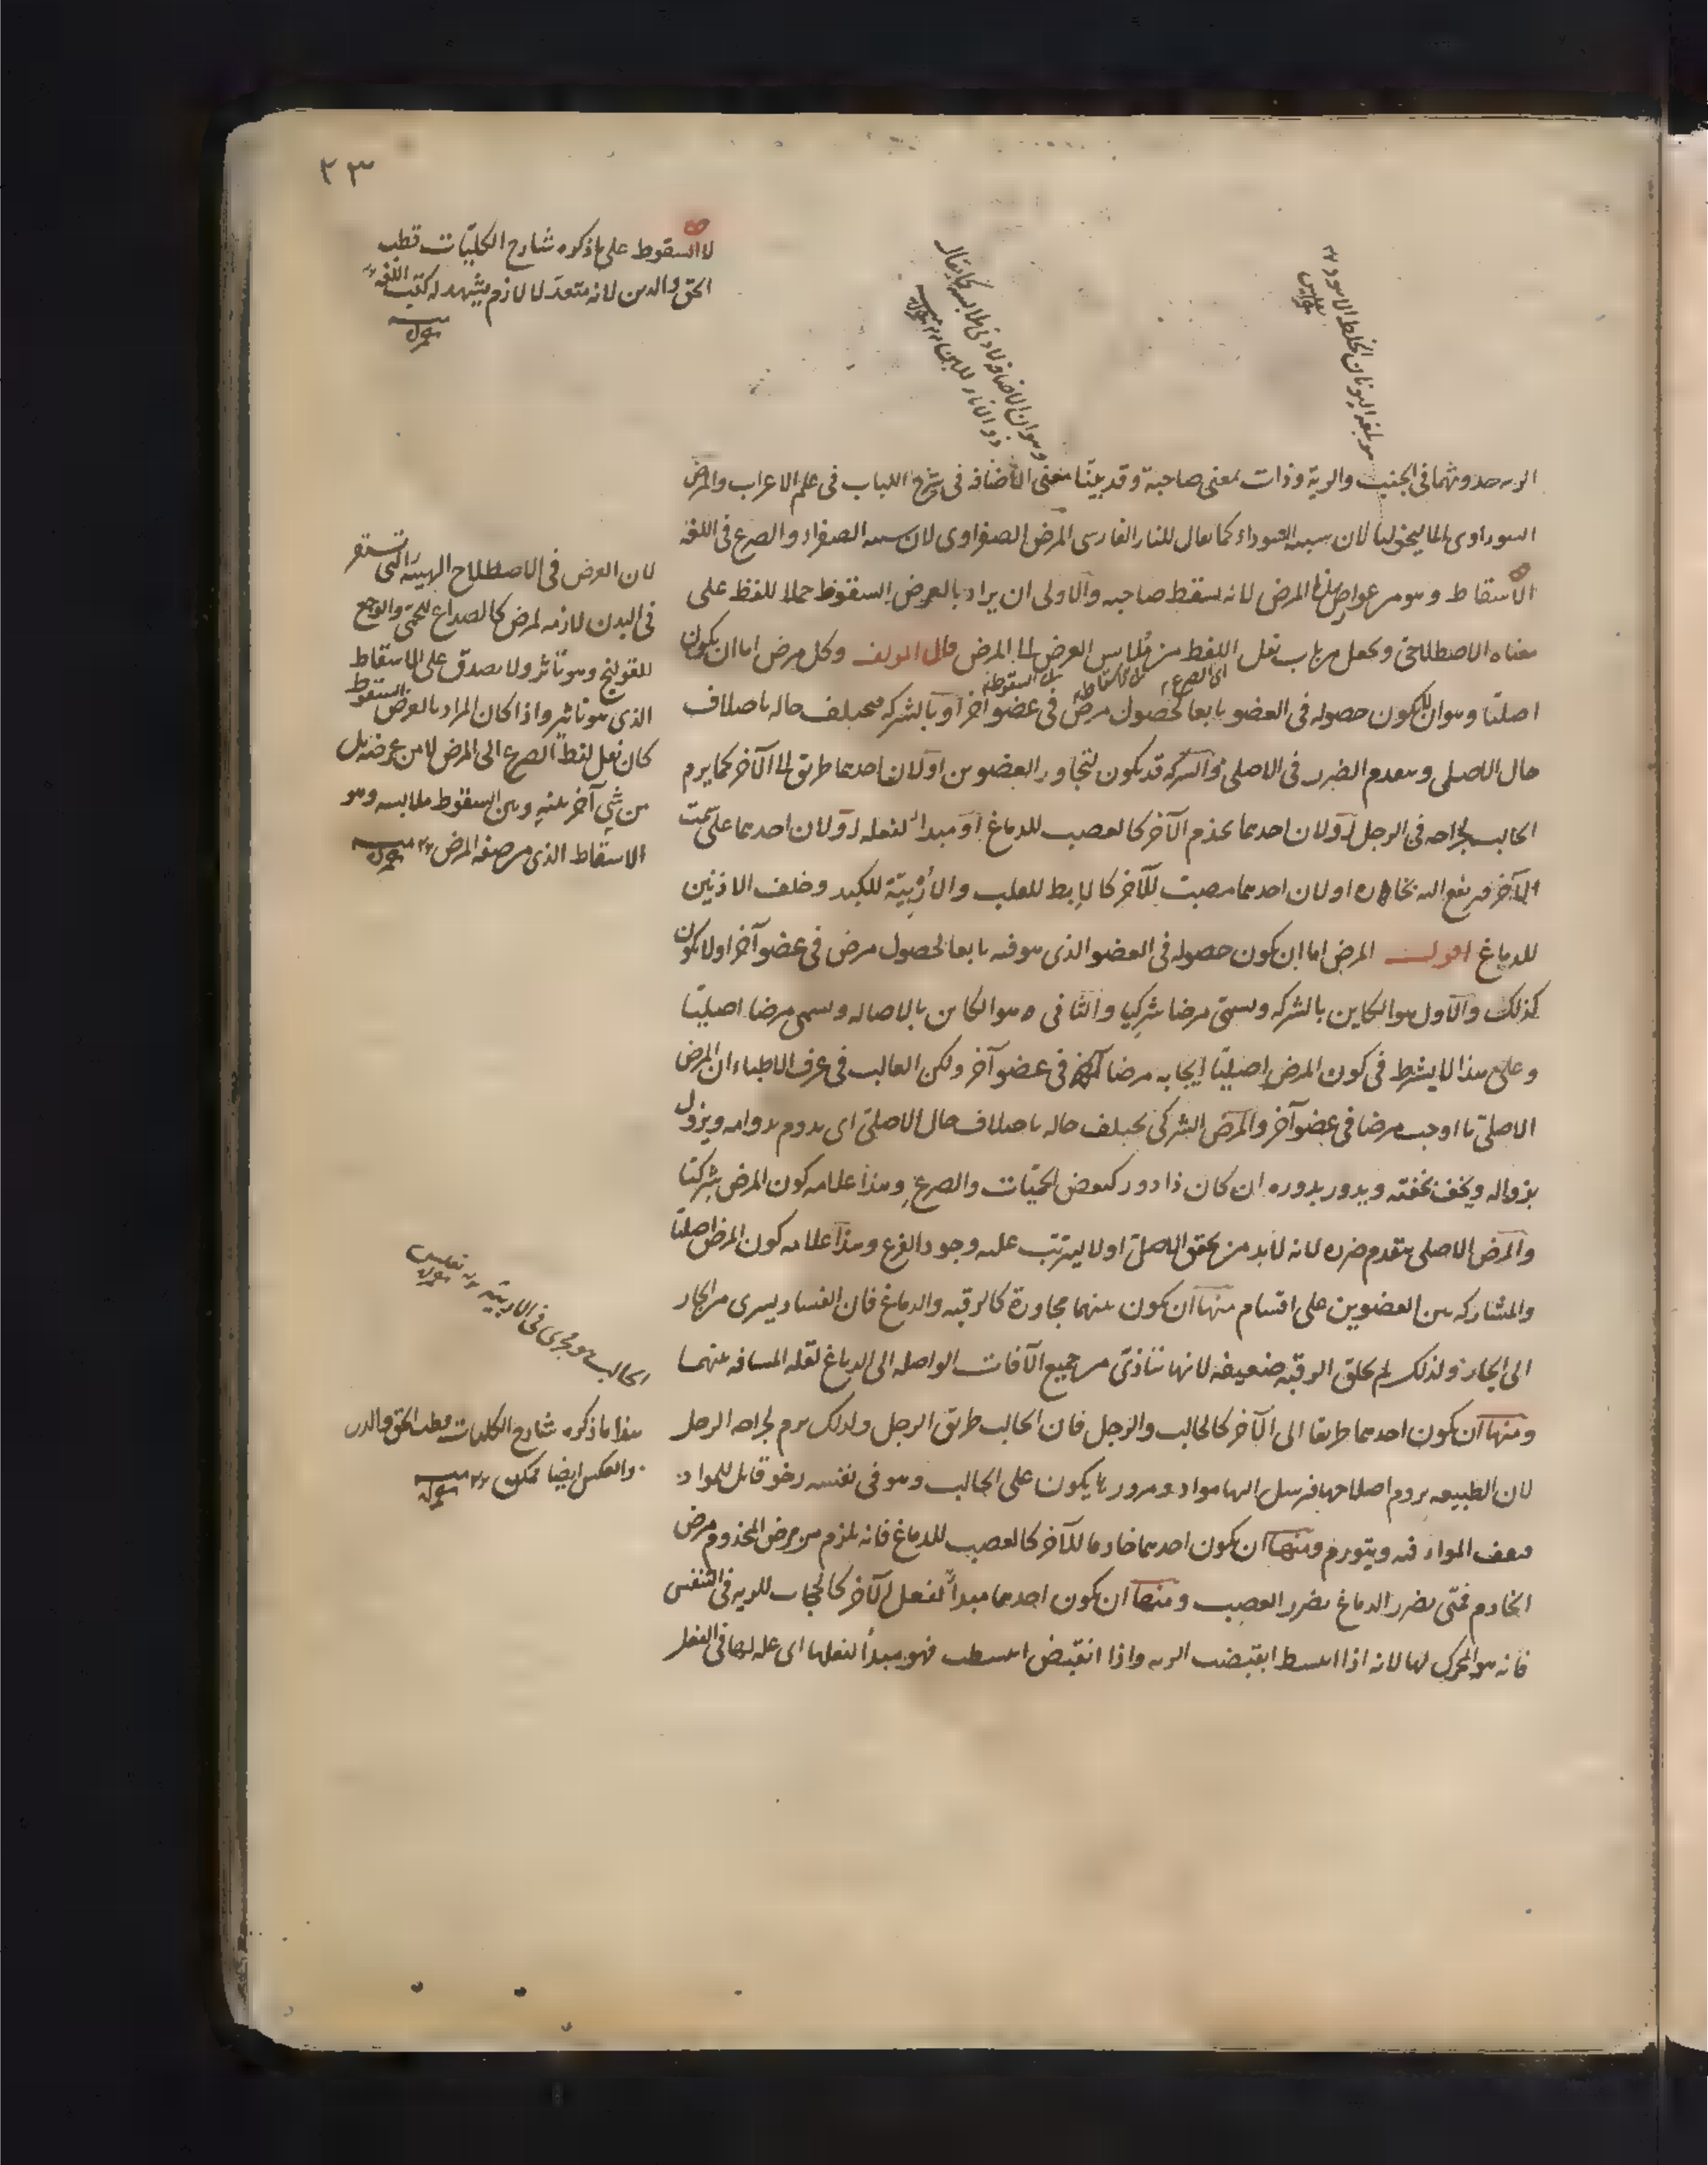 ٢٣
لا السقوط على ما ذكره شارح الكليات قطب
الحق والدين لانه متعد لا لازم يشهد له كتب اللغة
منه
وهو ان الاضافة لادنى ملابسة كما يقال
هو بلغة اليونان الخلط الاسود
الريه حدوثهما فى الجنب والرية وذات بمعنى صاحبة وقد بيّنا معنى الاضافة فى شرح اللباب فى علم الاعراب والمرض
السوداوى الماليخوليا لان سببه السوداء كما يقال للنار الفارسى المرض الصفراوى لان سببه الصفراء والصرع فى اللغة
الاسقاط وهو من عوارض هذا المرض لانه يسقط صاحبه والاولى ان يراد بالعرض السقوط حملا للفظ على
معناه الاصطلاحى ويجعل من باب نقل اللفظ من ملابس العرض الى المرض قال المولف وكل مرض اما ان يكون
اى الصرع الاسقاط السقوط
اصليا وهو ان لا يكون حصوله فى العضو تابعا لحصول مرض فى عضو آخر او بالشركه فيختلف حاله باختلاف
حال الاصلى ويتقدم الضرر فى الاصلى والشركه قد يكون لتجاور العضوين او لان احدهما طريق الى الآخر كما يرم
الحالب لجراحه فى الرجل او لان احدهما يخدم الآخر كالعصب للدماغ او مبدأ لفعله او لان احدهما على سمت
الآخر فيرتفع اليه بخاره او لان احدهما مصب للآخر كالابط للقلب والأربيّة للكبد وخلف الاذنين
للدماغ اقول المرض اما ان يكون حصوله فى العضو الذى هو فيه تابعا لحصول مرض فى عضو آخر او لا يكون
كذلك والاول هو الكاين بالشركه ويسمّى مرضا شركيا والثانى هو الكاين بالاصاله ويسمى مرضا اصليّا
وعلى هذا لا يشترط فى كون المرض اصليّا ايجابه مرضا فى عضو آخر ولكن الغالب فى عرف الاطباء ان المرض
الاصلىّ ما اوجب مرضا فى عضو آخر والمرض الشركى يختلف حاله باختلاف حال الاصلىّ اى يدوم بدوامه ويزول
بزواله ويخف بخفته ويدور بدوره ان كان ذا دور كبعض الحمّيات والصرع وهذا علامه كون المرض شركيّا
والمرض الاصلى يتقدم ضرره لانه لابد من تحقق الاصلىّ اولا ليترتب عليه وجود الفرع وهذا علامه كون المرض اصليّا
والمشاركه بين العضوين على اقسام منها ان يكون بينهما مجاورة كالرقبه والدماغ فان الفساد يسرى من الجار
الى الجار ولذلك لم يخلق الرقبه ضعيفه لانها تتأذىّ من جميع الآفات الواصله الى الدماغ لقله المسافه بينهما
ومنها ان يكون احدهما طريقا الى الآخر كالحالب والرجل فان الحالب طريق الرجل ولذلك يرم لجراحه الرجل
لان الطبيعه يروم اصلاحها فيرسل اليها مواد ومرورها يكون على الحالب وهو فى نفسه رخو قابل للمواد
فيقف المواد فيه ويتورم ومنها ان يكون احدهما خادما للآخر كالعصب للدماغ فانه يلزم من مرض المخدوم مرض
الخادم فمتى يضرر الدماغ يضرر العصب ومنها ان يكون احدهما مبدأ لفعل الآخر كالحجاب للريه فى التنفس
فانه هو المحرك لها لانه اذا انبسط انقبضت الريه واذا انقبض انبسطت فهو مبدأ لفعلها اى علة لها فى الفعل
لان العرض فى الاصطلاح الهيئة التى تستقر
فى البدن لازمه لمرض كالصداع للحمّى والوجع
للقولنج وهو تأثر ولا يصدق على الاسقاط
الذى هو تاثير واذا كان المراد بالعرض السقوط
كان نقل لفظ الصرع الى المرض لا من عرضه بل
من شئ آخر بينه وبين السقوط ملابسه وهو
الاسقاط الذى من صفه المرض منه
الحالب هو مجرى فى الاربيّة
هذا ما ذكره شارح الكليات قطب الحق والدين
والعكس ايضا ممكن منه